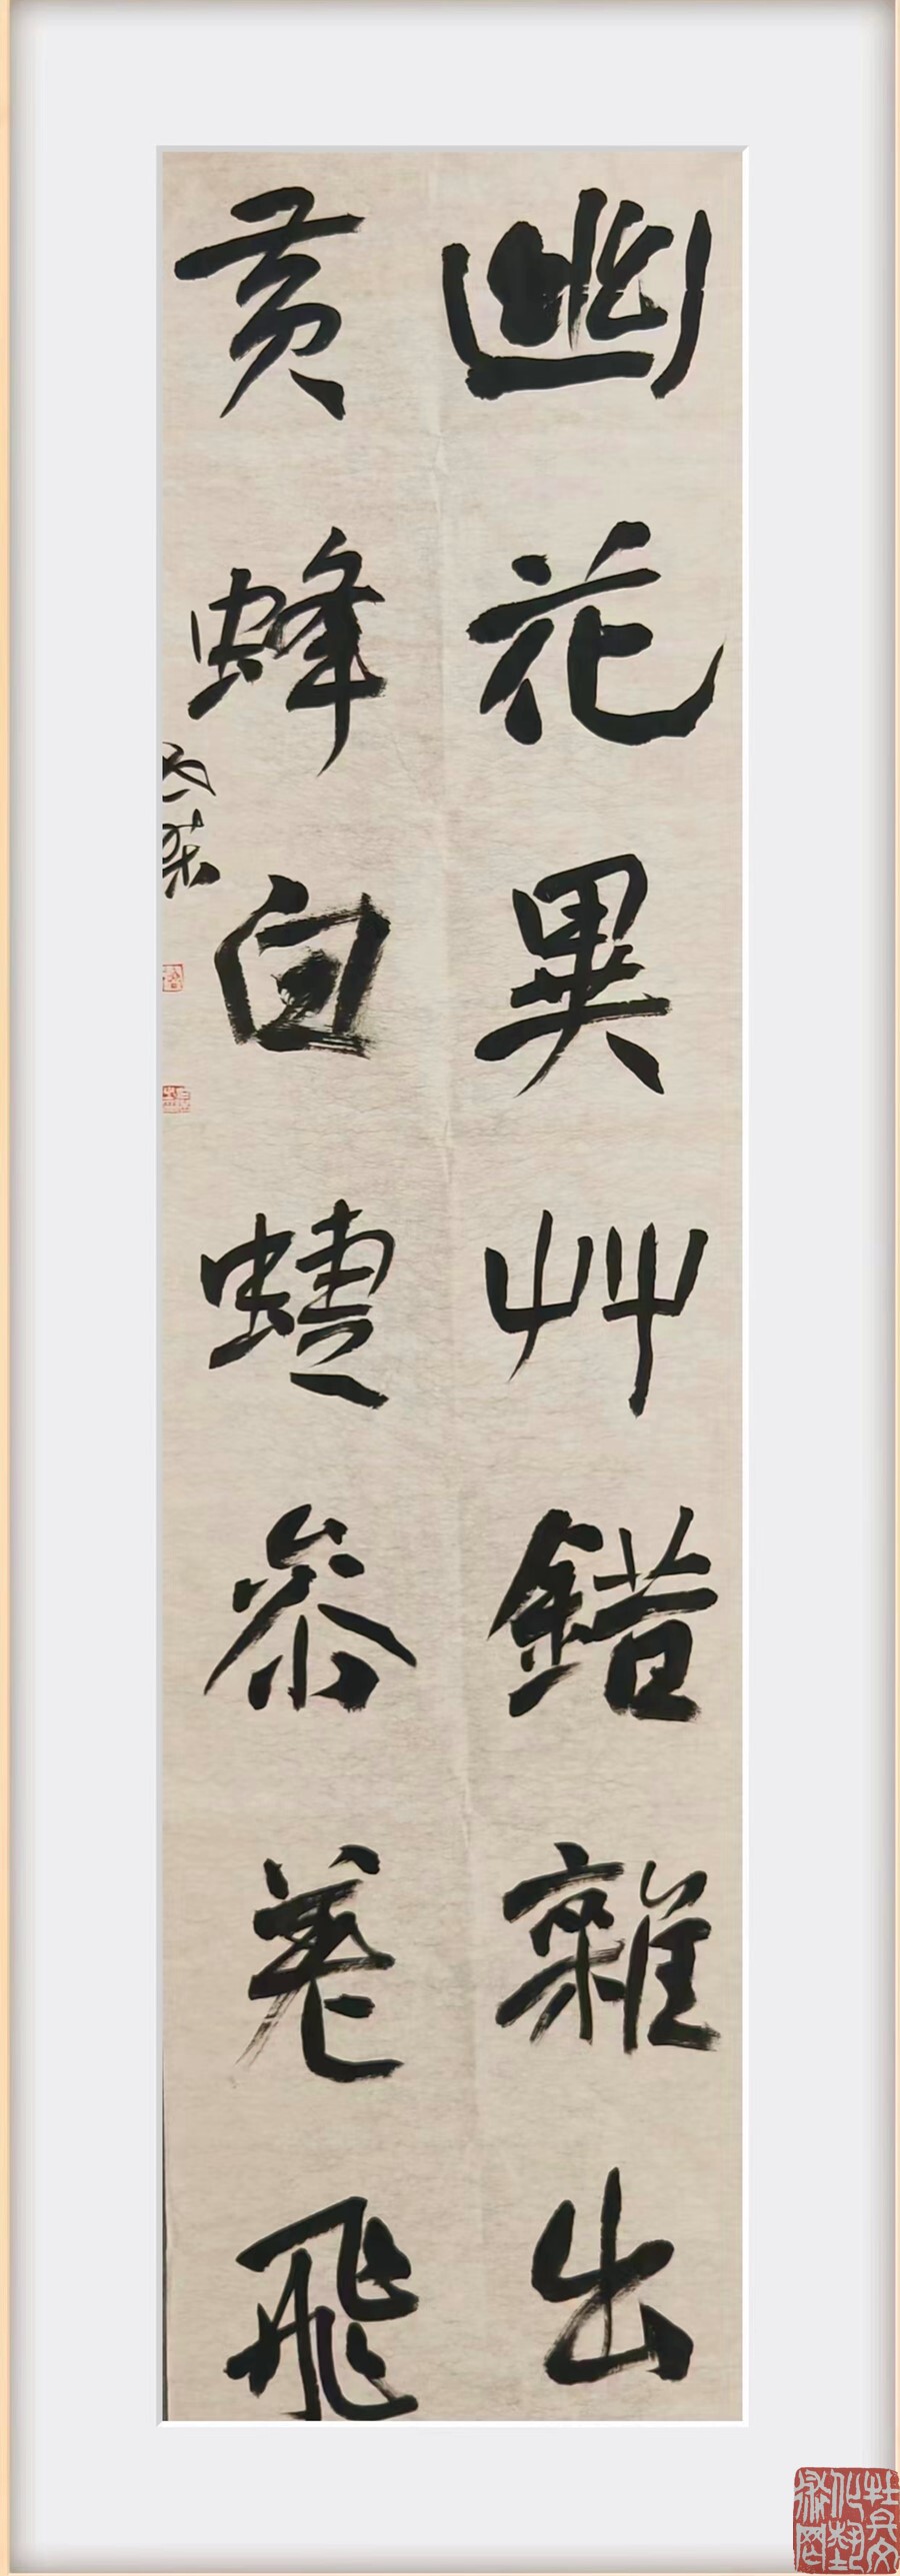 幽花異艸錯雜出
黄蜂白蜨參差飛